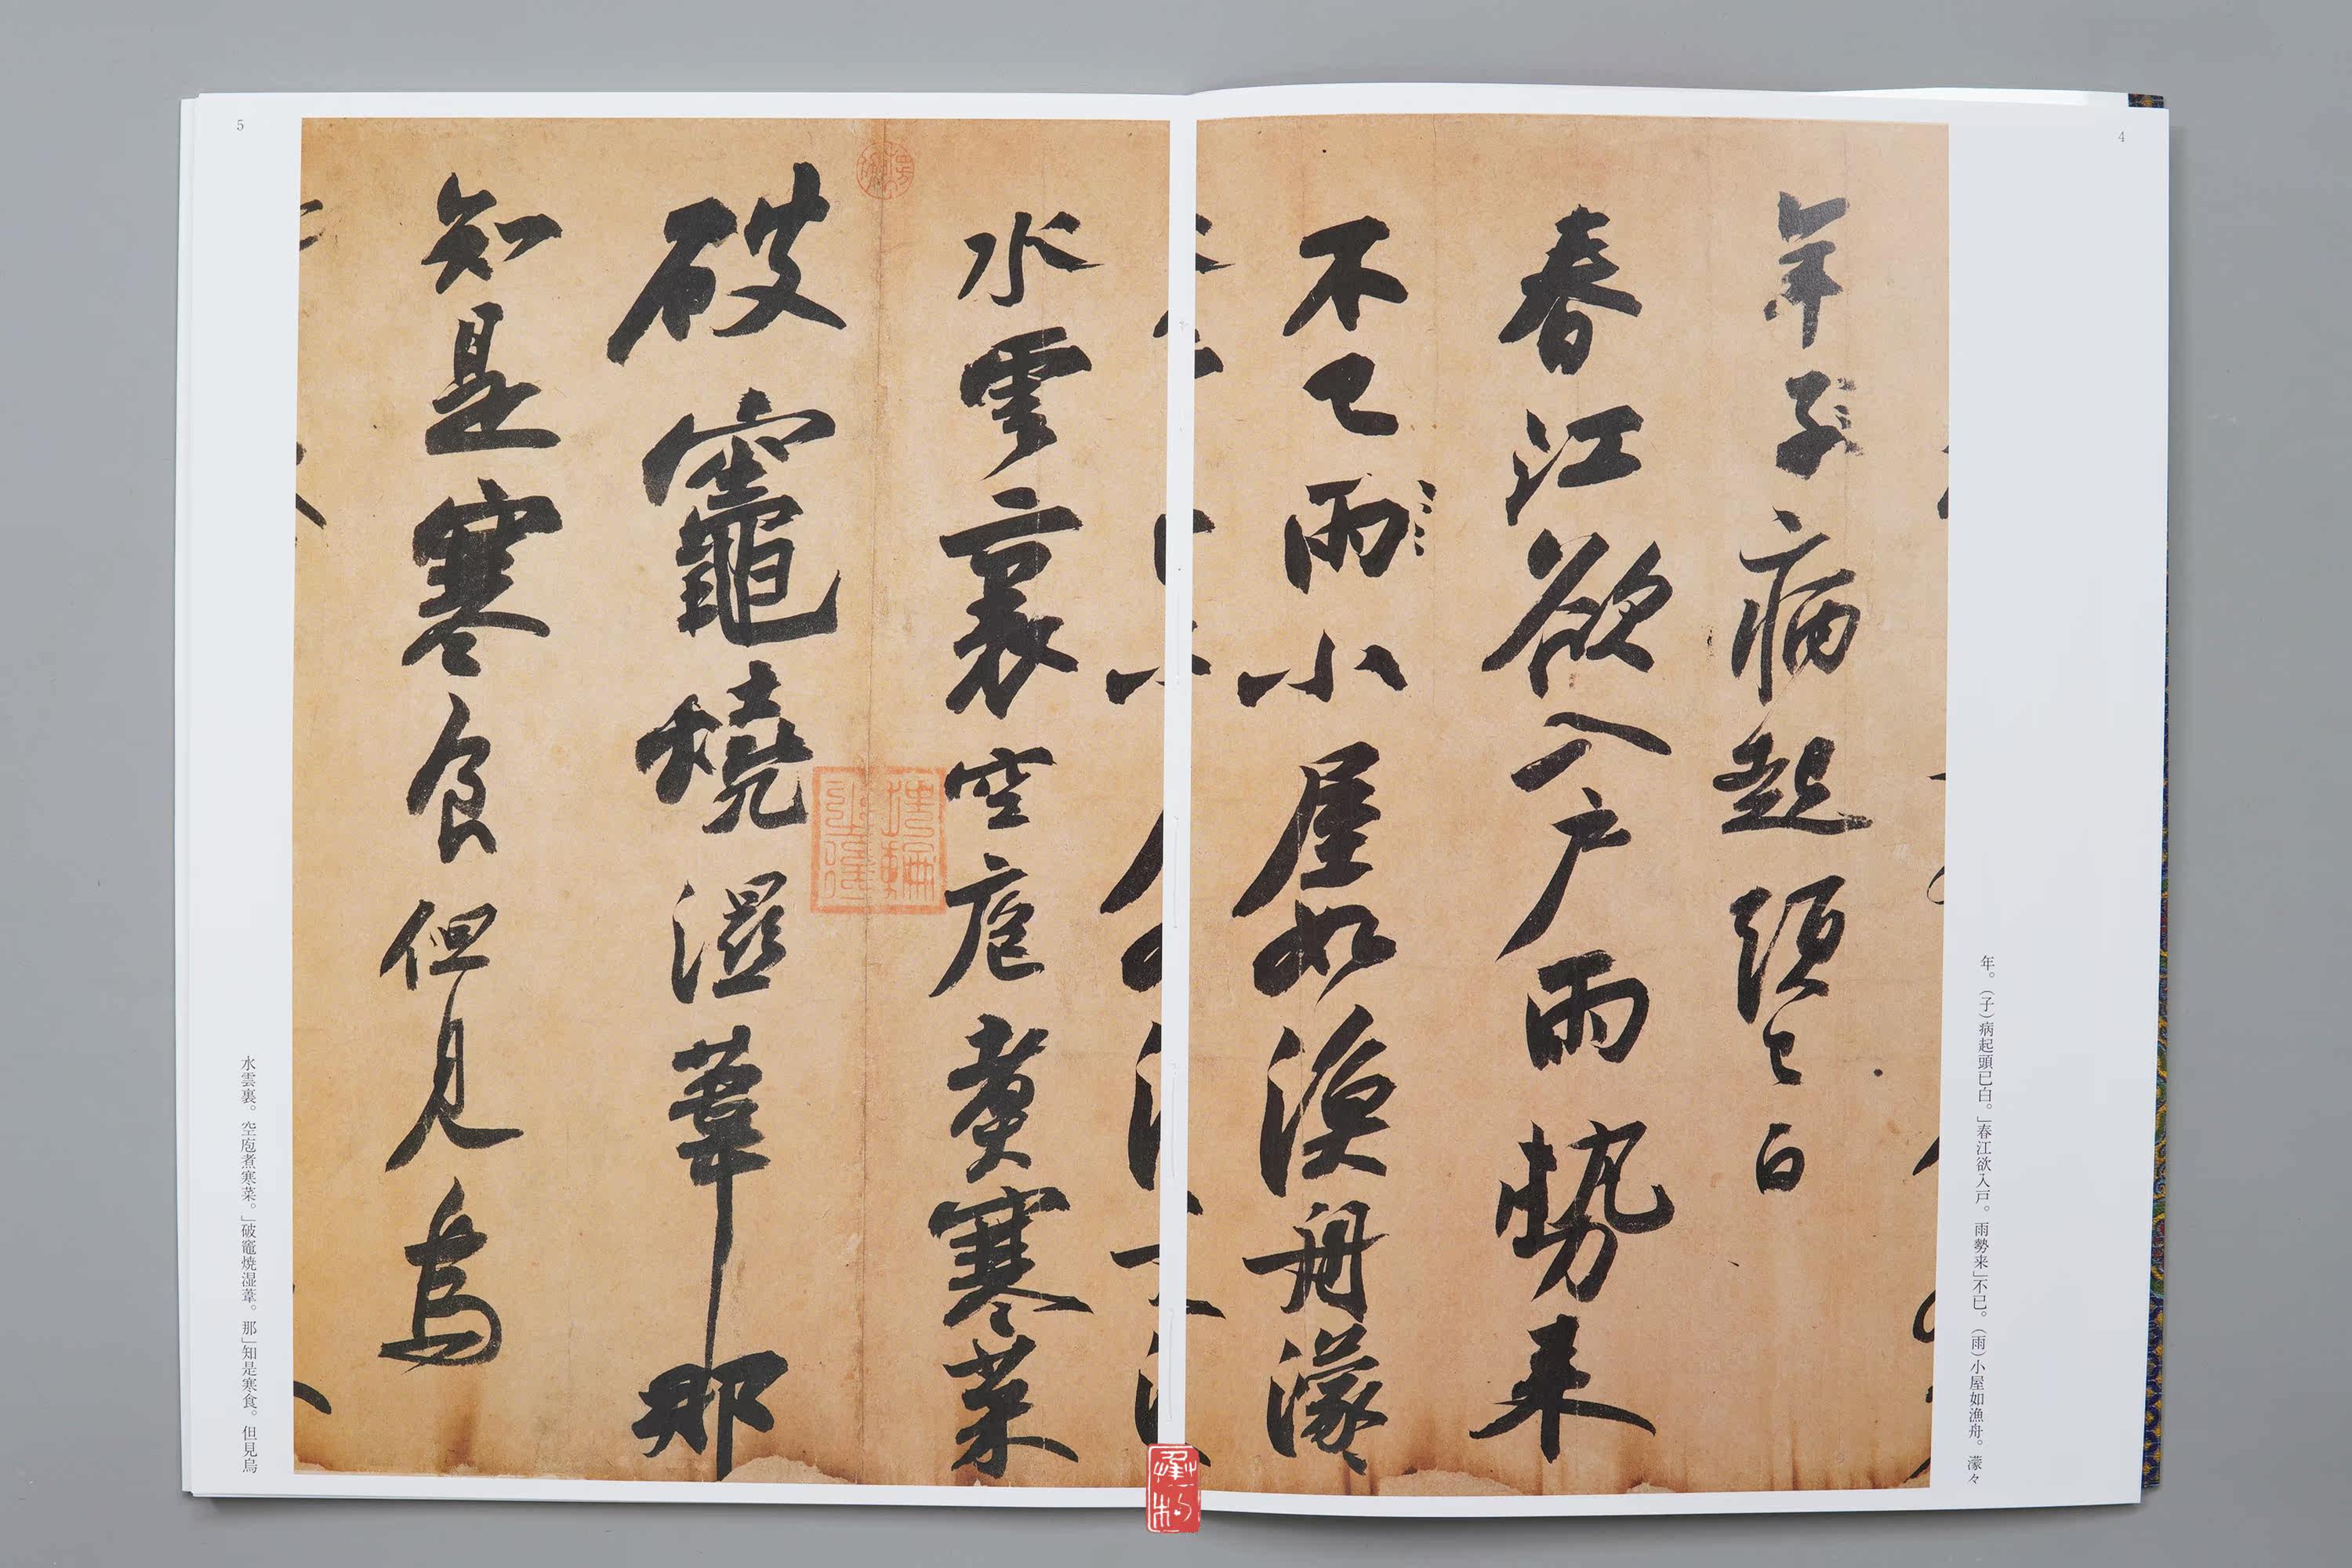 4
年子病起頭已白
春江欲入戶雨勢来
不已雨小屋如漁舟濛々
年。（子）病起頭已白。」春江欲入戸。雨勢来」不已。（雨）小屋如漁舟。濛々
5
水雲裏空庖煮寒菜
破竈燒濕葦那
知是寒食但見烏
水雲裏。空庖煮寒菜。」破竈焼湿葦。那」知是寒食。但見烏